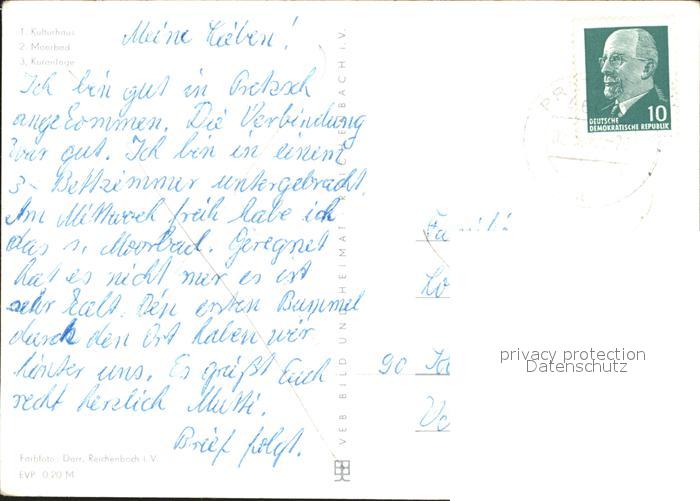 1. Kulturhaus
2. Moorbad
3. Kuranlage
Meine Lieben!
Ich bin gut in Pretzsch
angekommen. Die Verbindung
war gut. Ich bin in einem
3-Bettzimmer untergebracht.
Am Mittwoch früh habe ich
das 1. Moorbad. Geregnet
hat es nicht nur es ist
sehr kalt. Den ersten Bummel
durch den Ort haben wir
hinter uns. Es grüßt Euch
recht herzlich Mutti.
Brief folgt.
Farbfoto: Darr, Reichenbach i. V.
EVP 0.20 M
VEB BILD UND HEIMAT REICHENBACH I. V.
DEUTSCHE
DEMOKRATISCHE REPUBLIK
10
Famili
90
privacy protection
Datenschutz